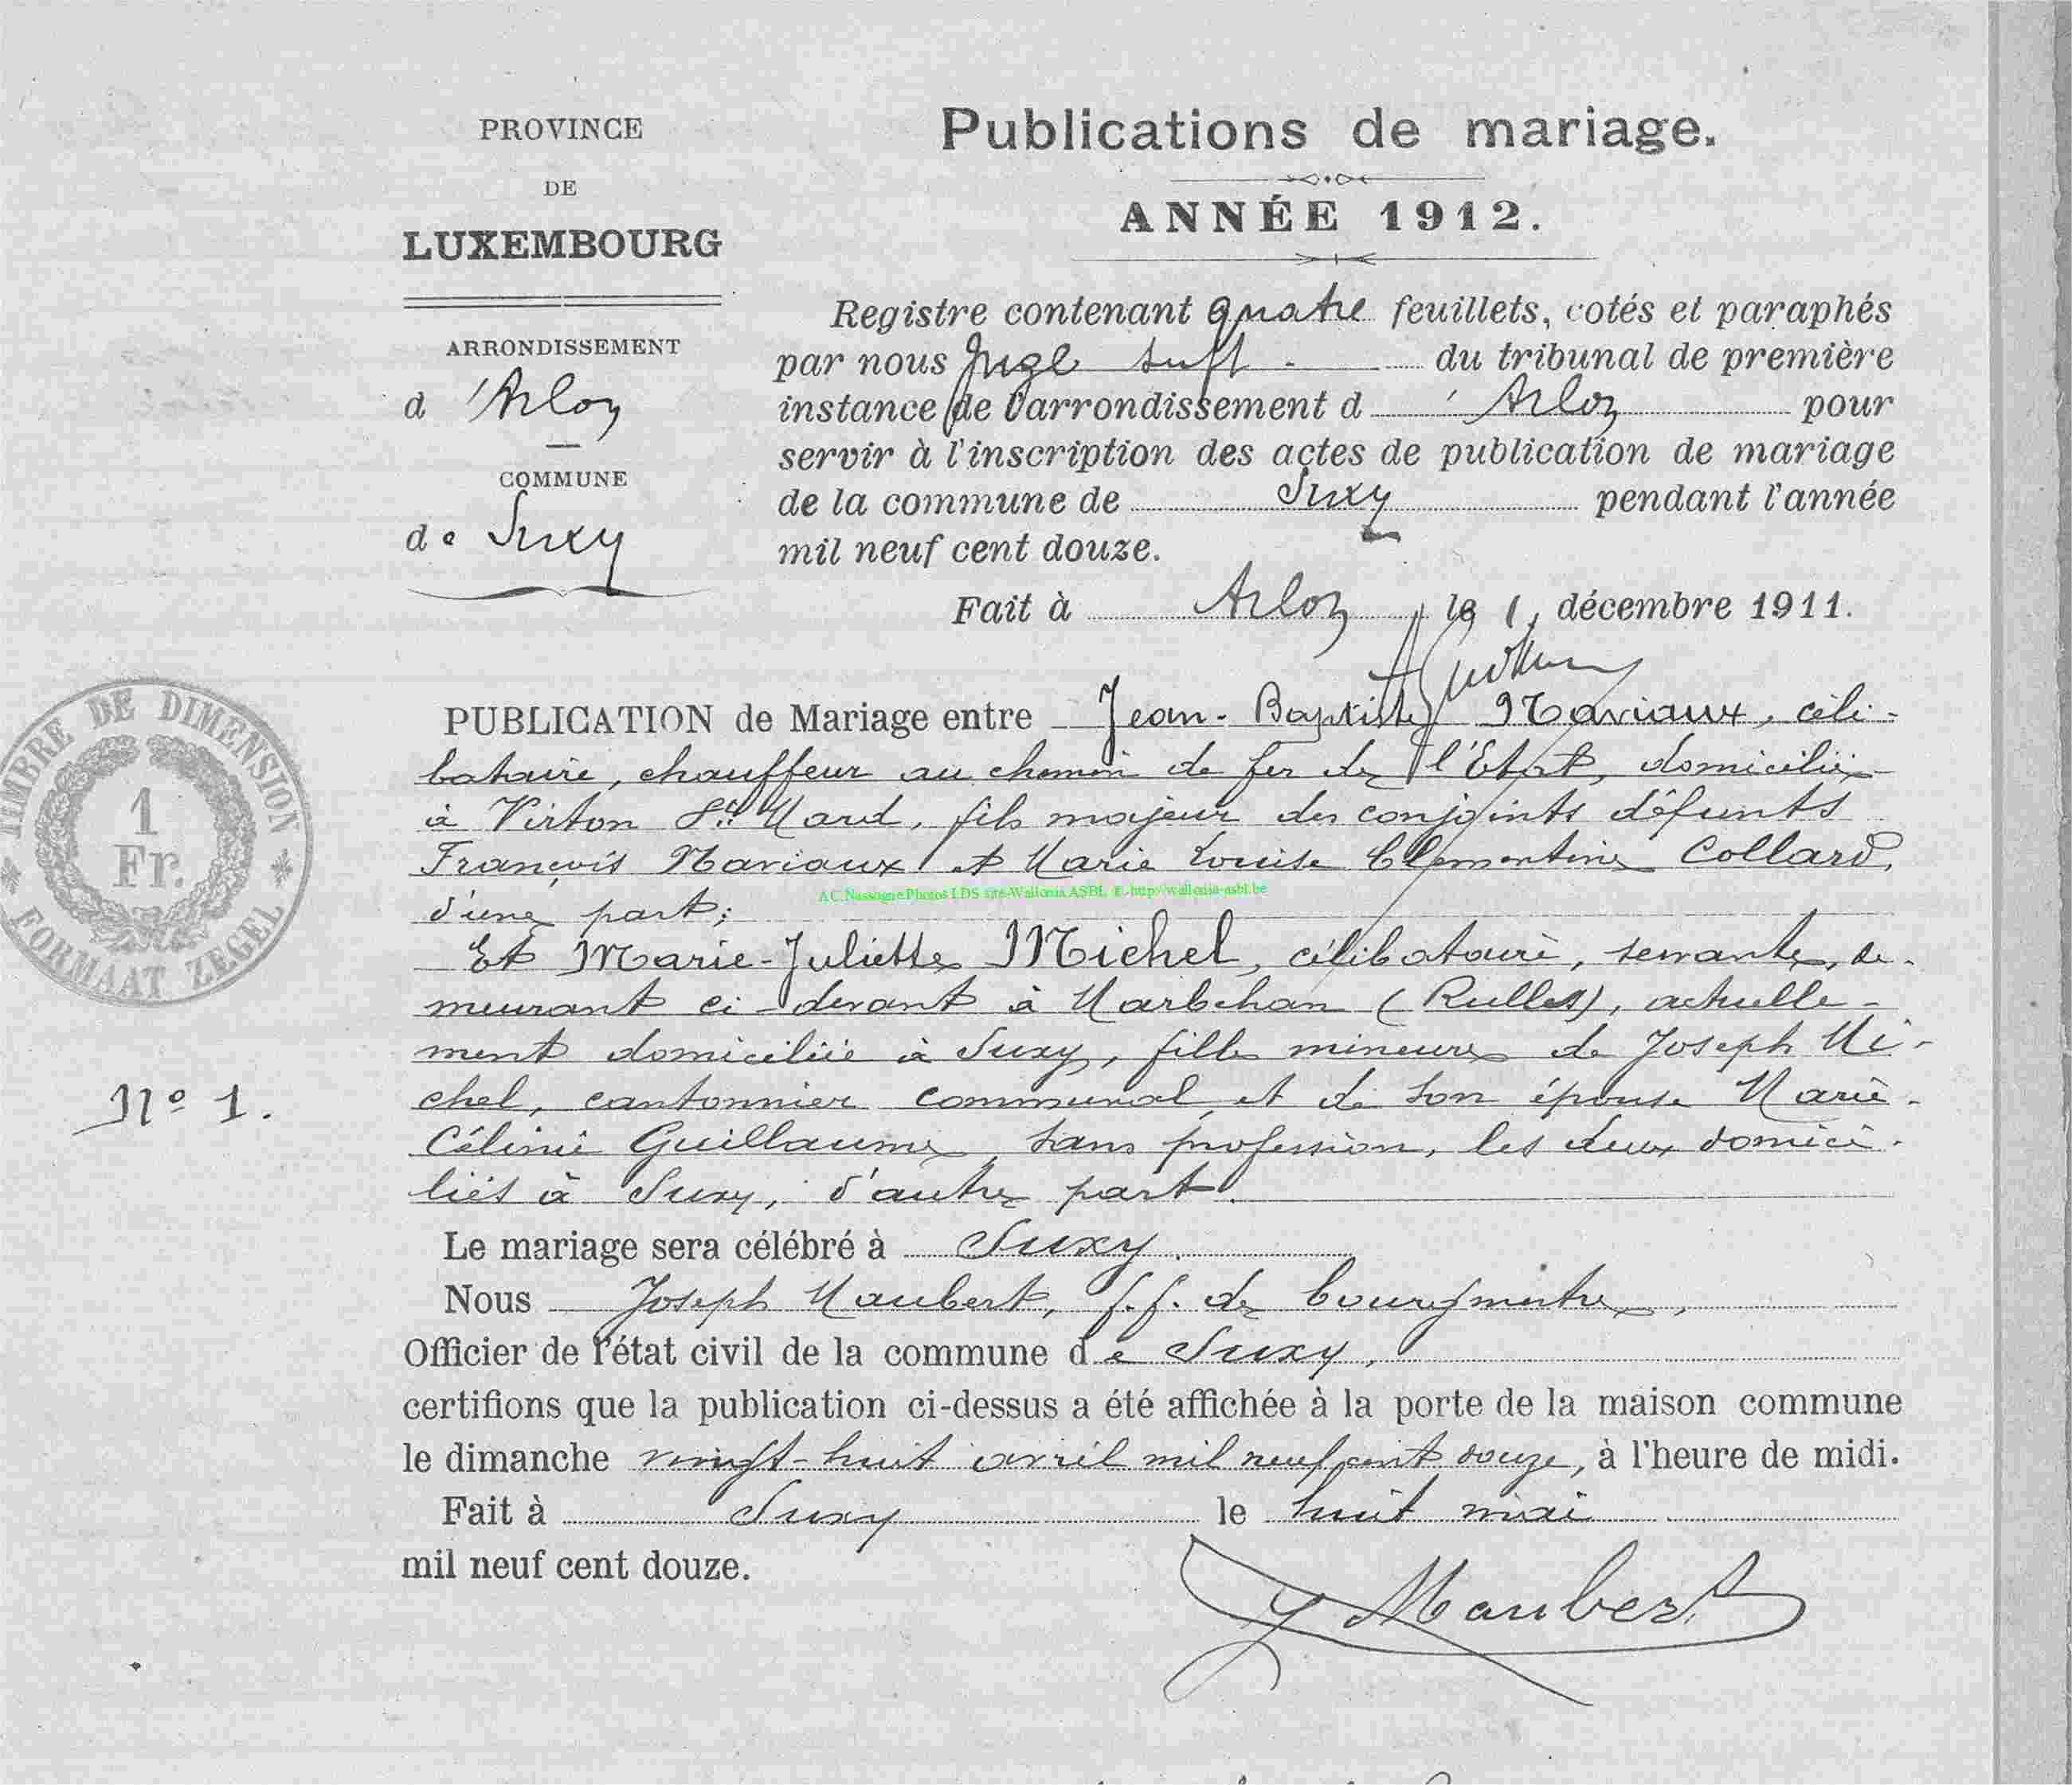 PROVINCE
DE
LUXEMBOURG
ARRONDISSEMENT
d 'Arlon
COMMUNE
de Suxy
Publications de mariage.
ANNÉE 1912.
Registre contenant quatre feuillets, cotés et paraphés
par nous Juge du tribunal de première
instance de l'arrondissement d 'Arlon pour
servir à l'inscription des actes de publication de mariage
de la commune de Suxy pendant l'année
mil neuf cent douze.
Fait à Arlon le 1, décembre 1911.
TIMBRE DE DIMENSION
1
Fr.
FORMAAT ZEGEL
PUBLICATION de Mariage entre Jean-Baptiste Mariaux, céli-
bataire, chauffeur au chemin de fer de l'Etat, domicilié
à Virton St. Mard, fils majeur des conjoints défunts
François Mariaux et Marie Louise Clémentine Collard,
d'une part;
AC Nassogne Photos LDS site Wallonia ASBL © http://wallonia-asbl.be
Et Marie-Juliette Michel, célibataire, servante, de-
meurant ci-devant à Marbehan (Rulles), actuelle-
ment domiciliée à Suxy, fille mineure de Joseph Mi-
chel, cantonnier communal, et de son épouse Marie-
Céline Guillaume, sans profession, les deux domici-
liés à Suxy, d'autre part.
N° 1.
Le mariage sera célébré à Suxy.
Nous Joseph Maubert, f.f. de bourgmestre,
Officier de l'état civil de la commune de Suxy,
certifions que la publication ci-dessus a été affichée à la porte de la maison commune
le dimanche vingt-huit avril mil neuf cent douze, à l'heure de midi.
Fait à Suxy le huit mai
mil neuf cent douze.
J Maubert